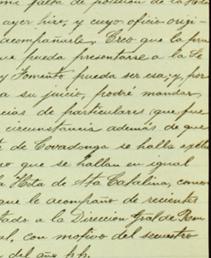 mi falta de posesión de la
ayer hice, y cuyo oficio origi-
acompañarle. Creo que la pru
que pueda presentarse a la Se
y Fomento pueda ser esa, y por
a su juicio, podré mandar
cias de particulares que fue
circunstancia además de que
de Covadonga se halla
co que se hallan en igual
la Hda de Sta Catalina, como
que le acompaño de recientes
tado a la Dirección Gral de
al, con motivo del secuestro
del año p.p.